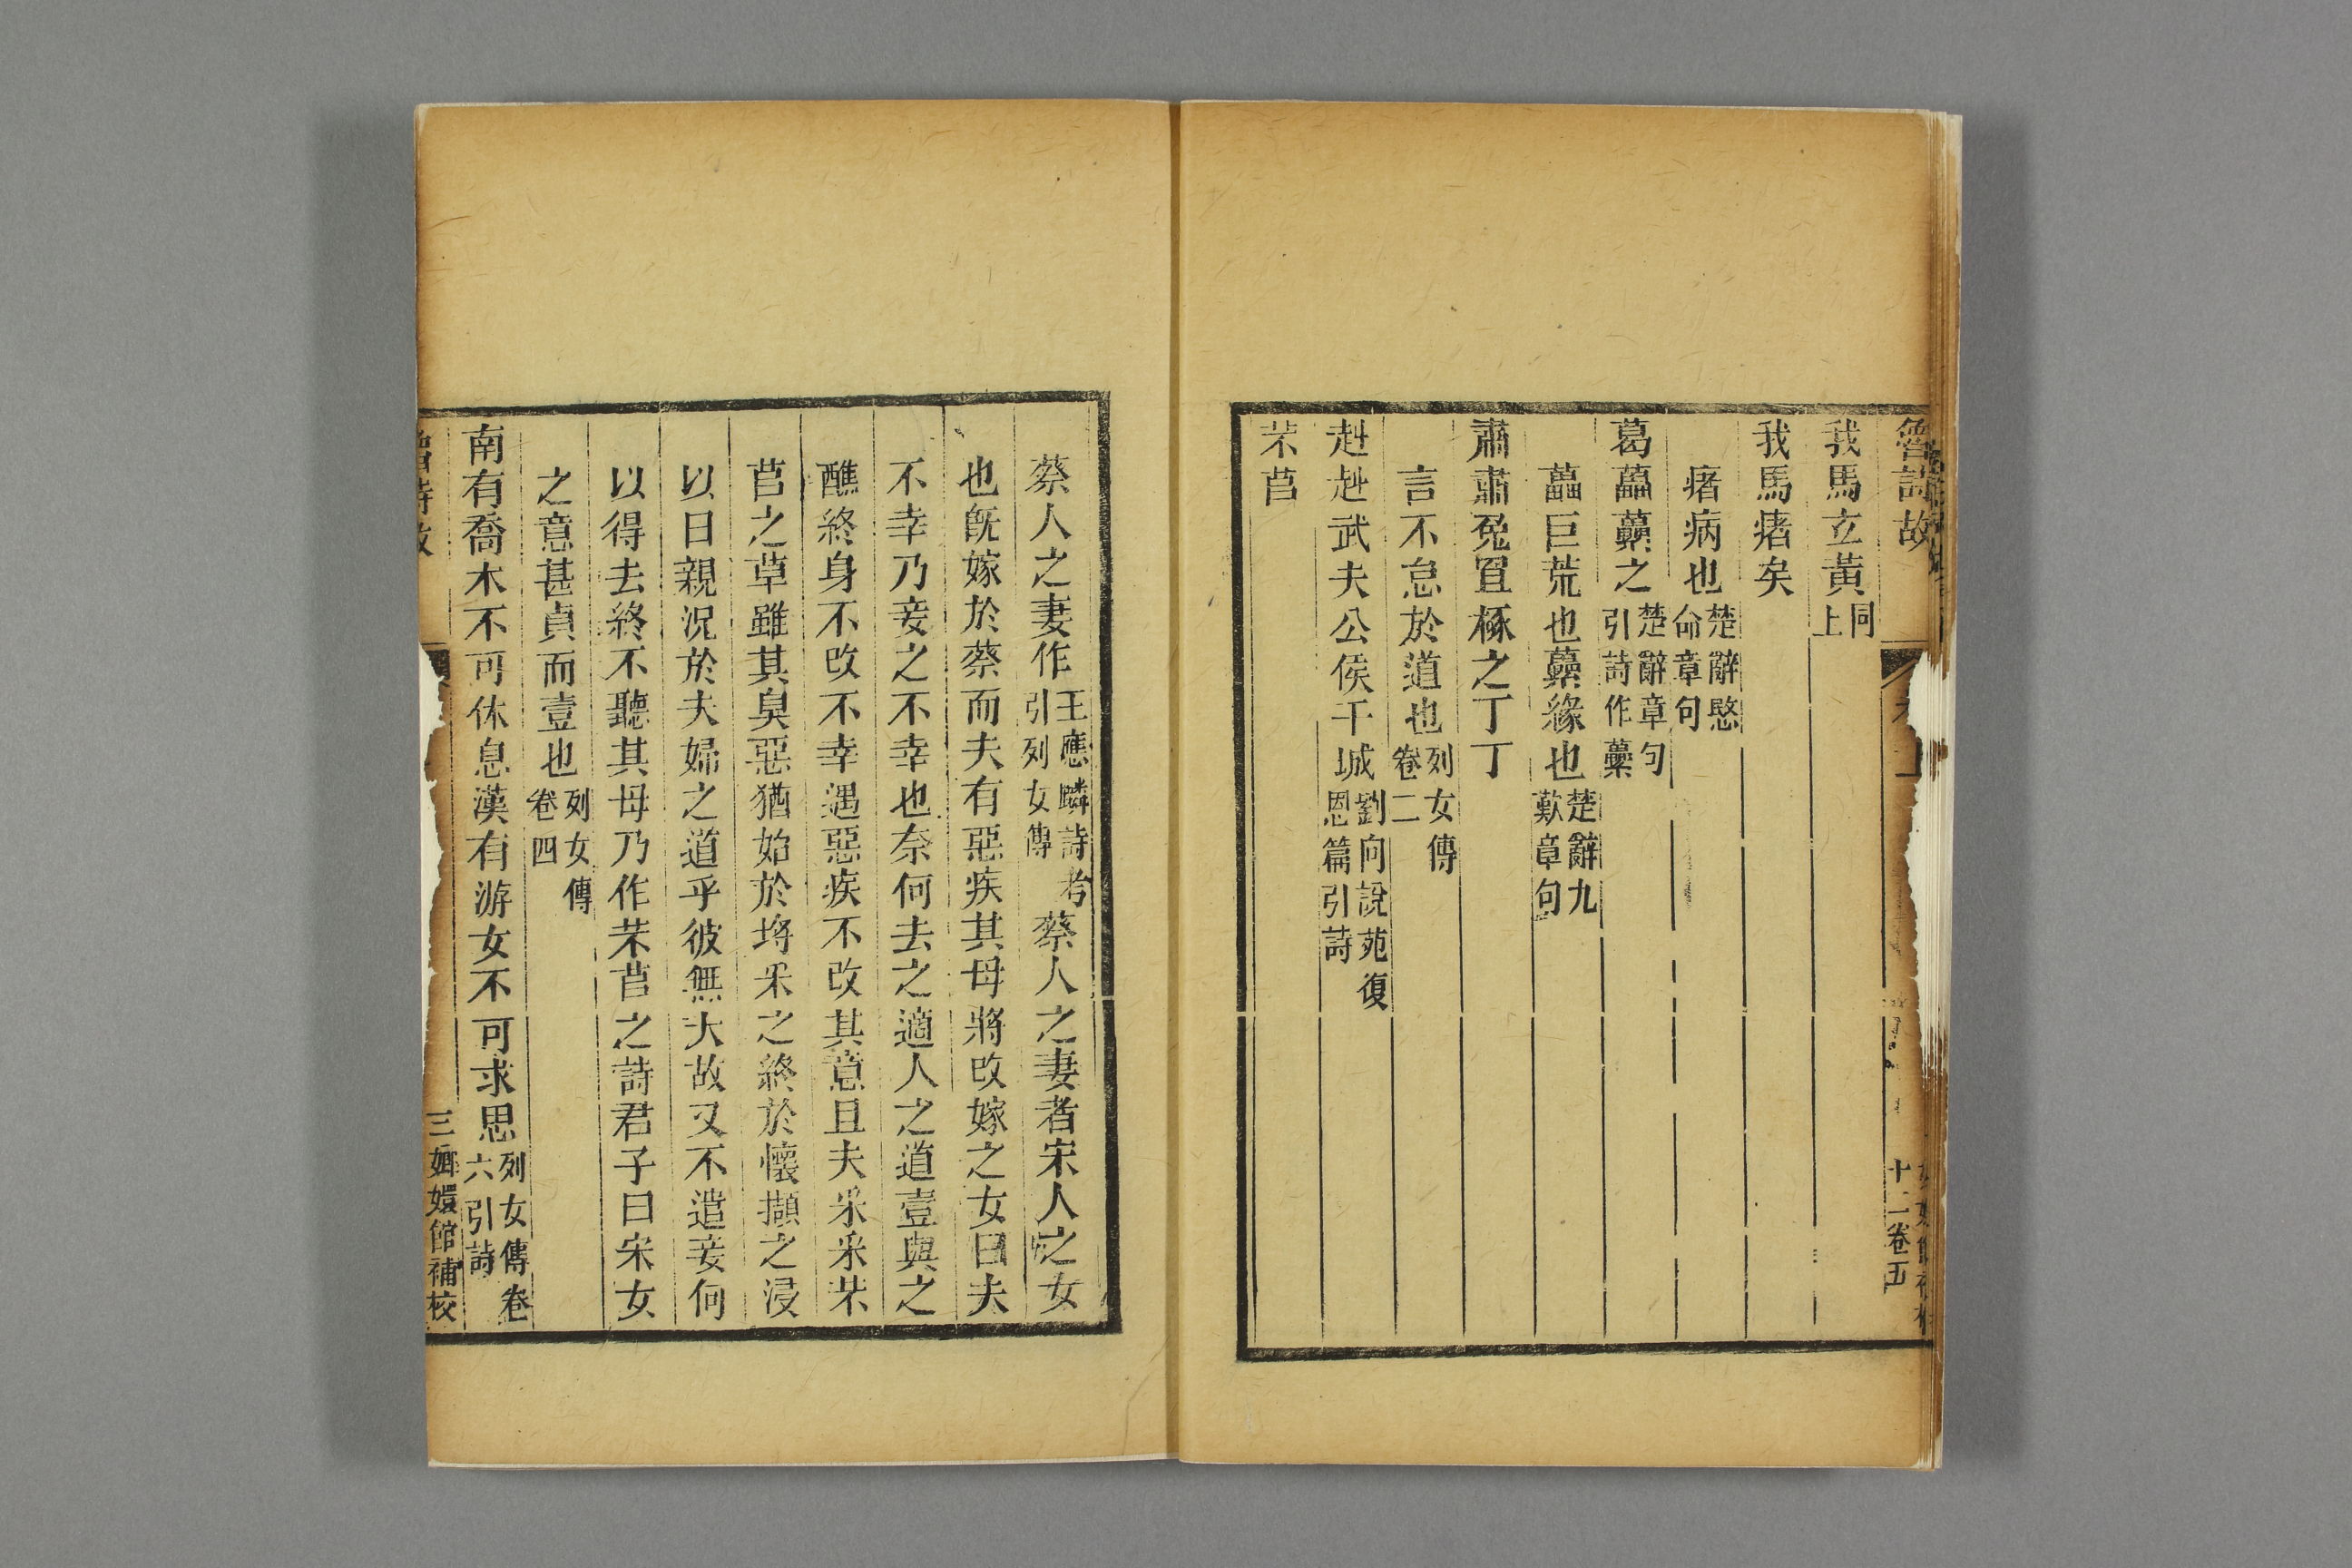 魯詩故
我馬玄黃同上
我馬瘏矣
瘏病也楚辭愍命章句
葛藟虆之楚辭章句引詩作虆
藟巨荒也虆緣也楚辭九歎章句
肅肅兔罝椓之丁丁
言不怠於道也列女傳卷二
赳赳武夫公侯干城劉向說苑復恩篇引詩
芣苢
蔡人之妻作王應麟詩考引列女傳蔡人之妻者宋人之女
也旣嫁於蔡而夫有惡疾其母將改嫁之女曰夫
不幸乃妾之不幸也奈何去之適人之道壹與之
醮終身不改不幸遇惡疾不改其意且夫釆釆芣
苢之草雖其臭惡猶始於捋釆之終於懷擷之浸
以日親況於夫婦之道乎彼無大故又不遣妾何
以得去終不聽其母乃作芣苢之詩君子曰宋女
之意甚貞而壹也列女傳卷四
南有喬木不可休息漢有游女不可求思列女傳卷六引詩
魯詩故
三嫏嬛館補校